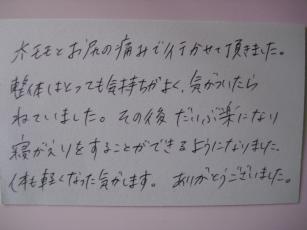 太モモとお尻の痛みで行かせて頂きました。
整体はとっても気持ちがよく、気がついたら
ねていました。その後だいぶ楽になり
寝がえりをすることができるようになりました。
体も軽くなった気がします。 ありがとうございました。